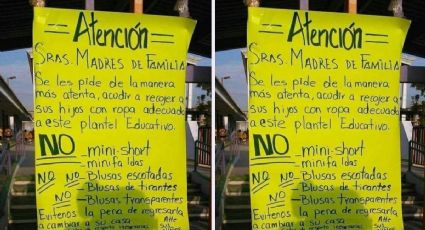 Atención
SRAS. MADRES DE FAMILIA
Se les pide de la manera
más atenta, acudir a recojer a
sus hijos con ropa adecuada
a este plantel Educativo.
NO mini-short
minifaldas
NO NO Blusas escotadas
Blusas de tirantes
NO Blusas transparentes
Evitenos la pena de regresarla
a cambiar a su casa
Atención
SRAS. MADRES DE FAMILIA
Se les pide de la manera
más atenta, acudir a recojer a
sus hijos con ropa adecuada
a este plantel Educativo.
NO mini-short
minifaldas
NO NO Blusas escotadas
Blusas de tirantes
NO Blusas transparentes
Evitenos la pena de regresarla
a cambiar a su casa